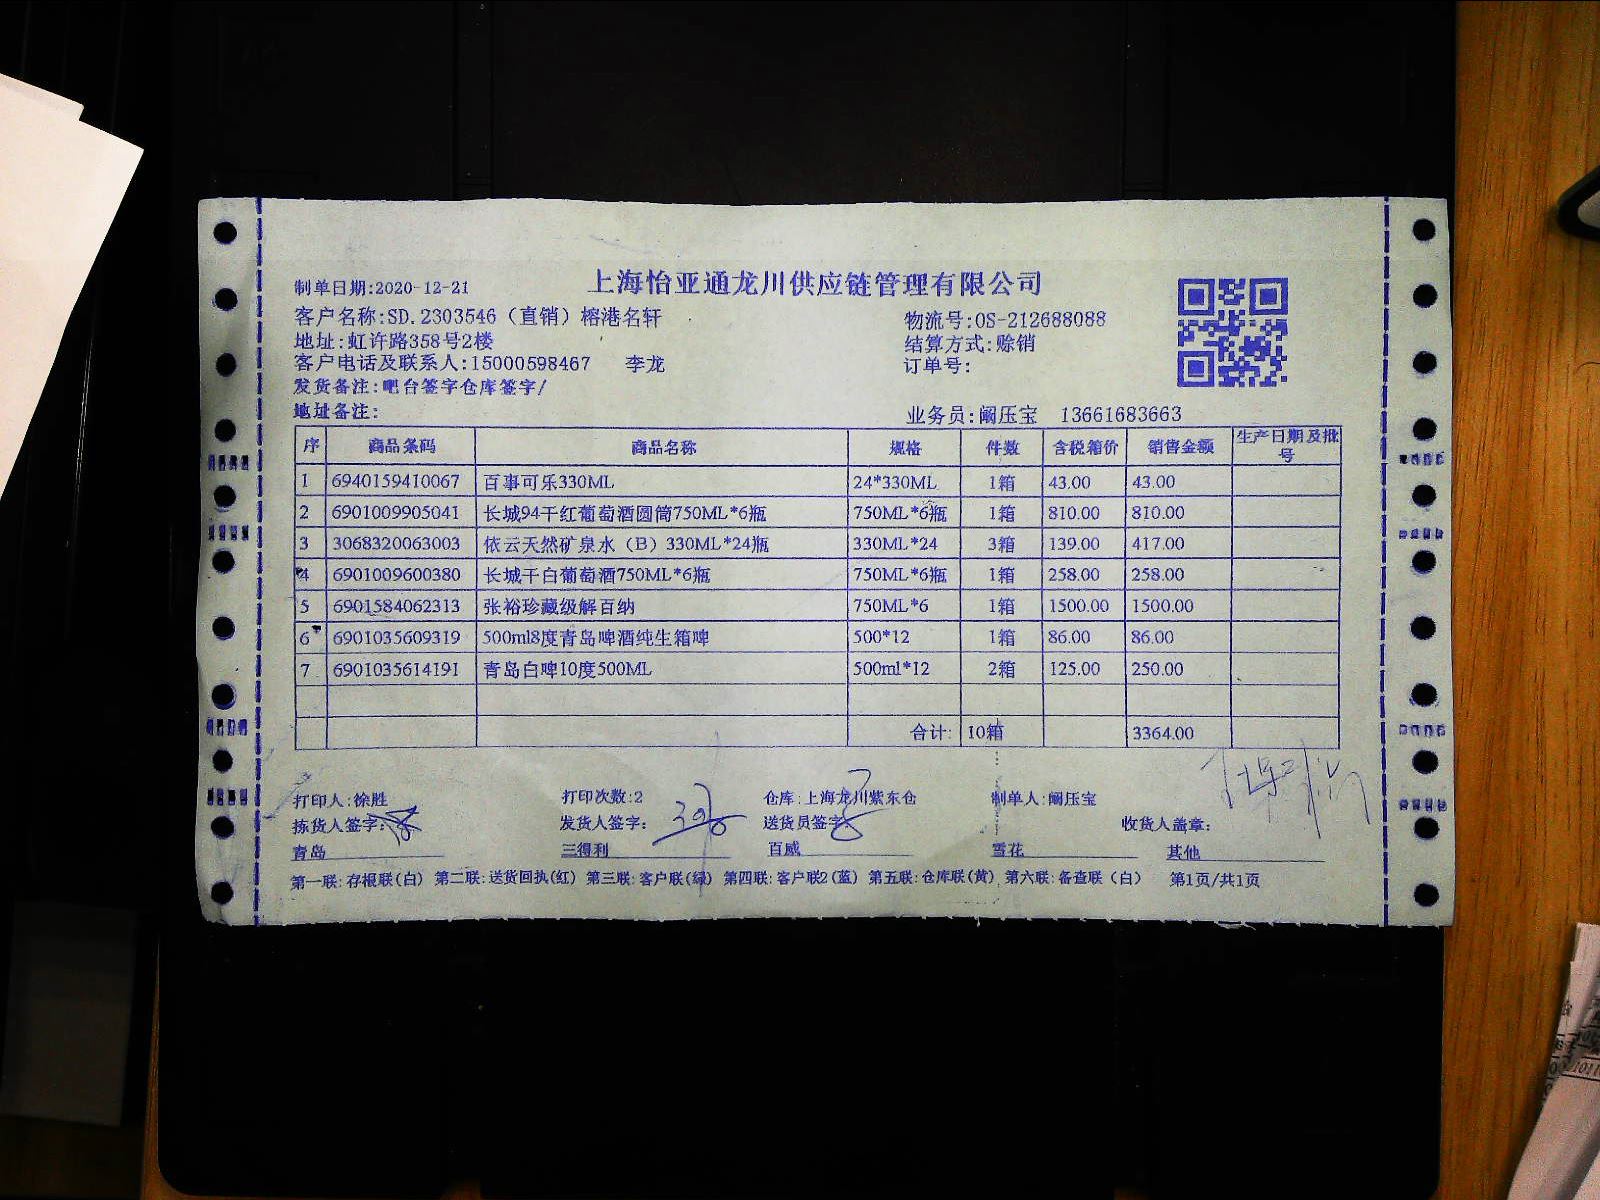 上海怡亚通龙川供应链管理有限公司
制单日期:2020-12-21
客户名称:SD.2303546（直销）榕港名轩 物流号:OS-212688088
地址:虹许路358号2楼 结算方式:赊销
客户电话及联系人:15000598467 李龙 订单号:
发货备注:吧台签字仓库签字/
地址备注: 业务员:阚压宝 13661683663
序 商品条码 商品名称 规格 件数 含税箱价 销售金额 生产日期及批号
1 6940159410067 百事可乐330ML 24*330ML 1箱 43.00 43.00
2 6901009905041 长城94干红葡萄酒圆筒750ML*6瓶 750ML*6瓶 1箱 810.00 810.00
3 3068320063003 依云天然矿泉水（B）330ML*24瓶 330ML*24 3箱 139.00 417.00
4 6901009600380 长城干白葡萄酒750ML*6瓶 750ML*6瓶 1箱 258.00 258.00
5 6901584062313 张裕珍藏级解百纳 750ML*6 1箱 1500.00 1500.00
6 6901035609319 500ml8度青岛啤酒纯生箱啤 500*12 1箱 86.00 86.00
7 6901035614191 青岛白啤10度500ML 500ml*12 2箱 125.00 250.00
合计: 10箱 3364.00
打印人:徐胜 打印次数:2 仓库:上海龙川紫东仓 制单人:阚压宝
拣货人签字: 发货人签字: 送货员签字: 收货人盖章:
青岛 三得利 百威 雪花 其他
第一联:存根联(白) 第二联:送货回执(红) 第三联:客户联(绿) 第四联:客户联2(蓝) 第五联:仓库联(黄) 第六联:备查联（白） 第1页/共1页